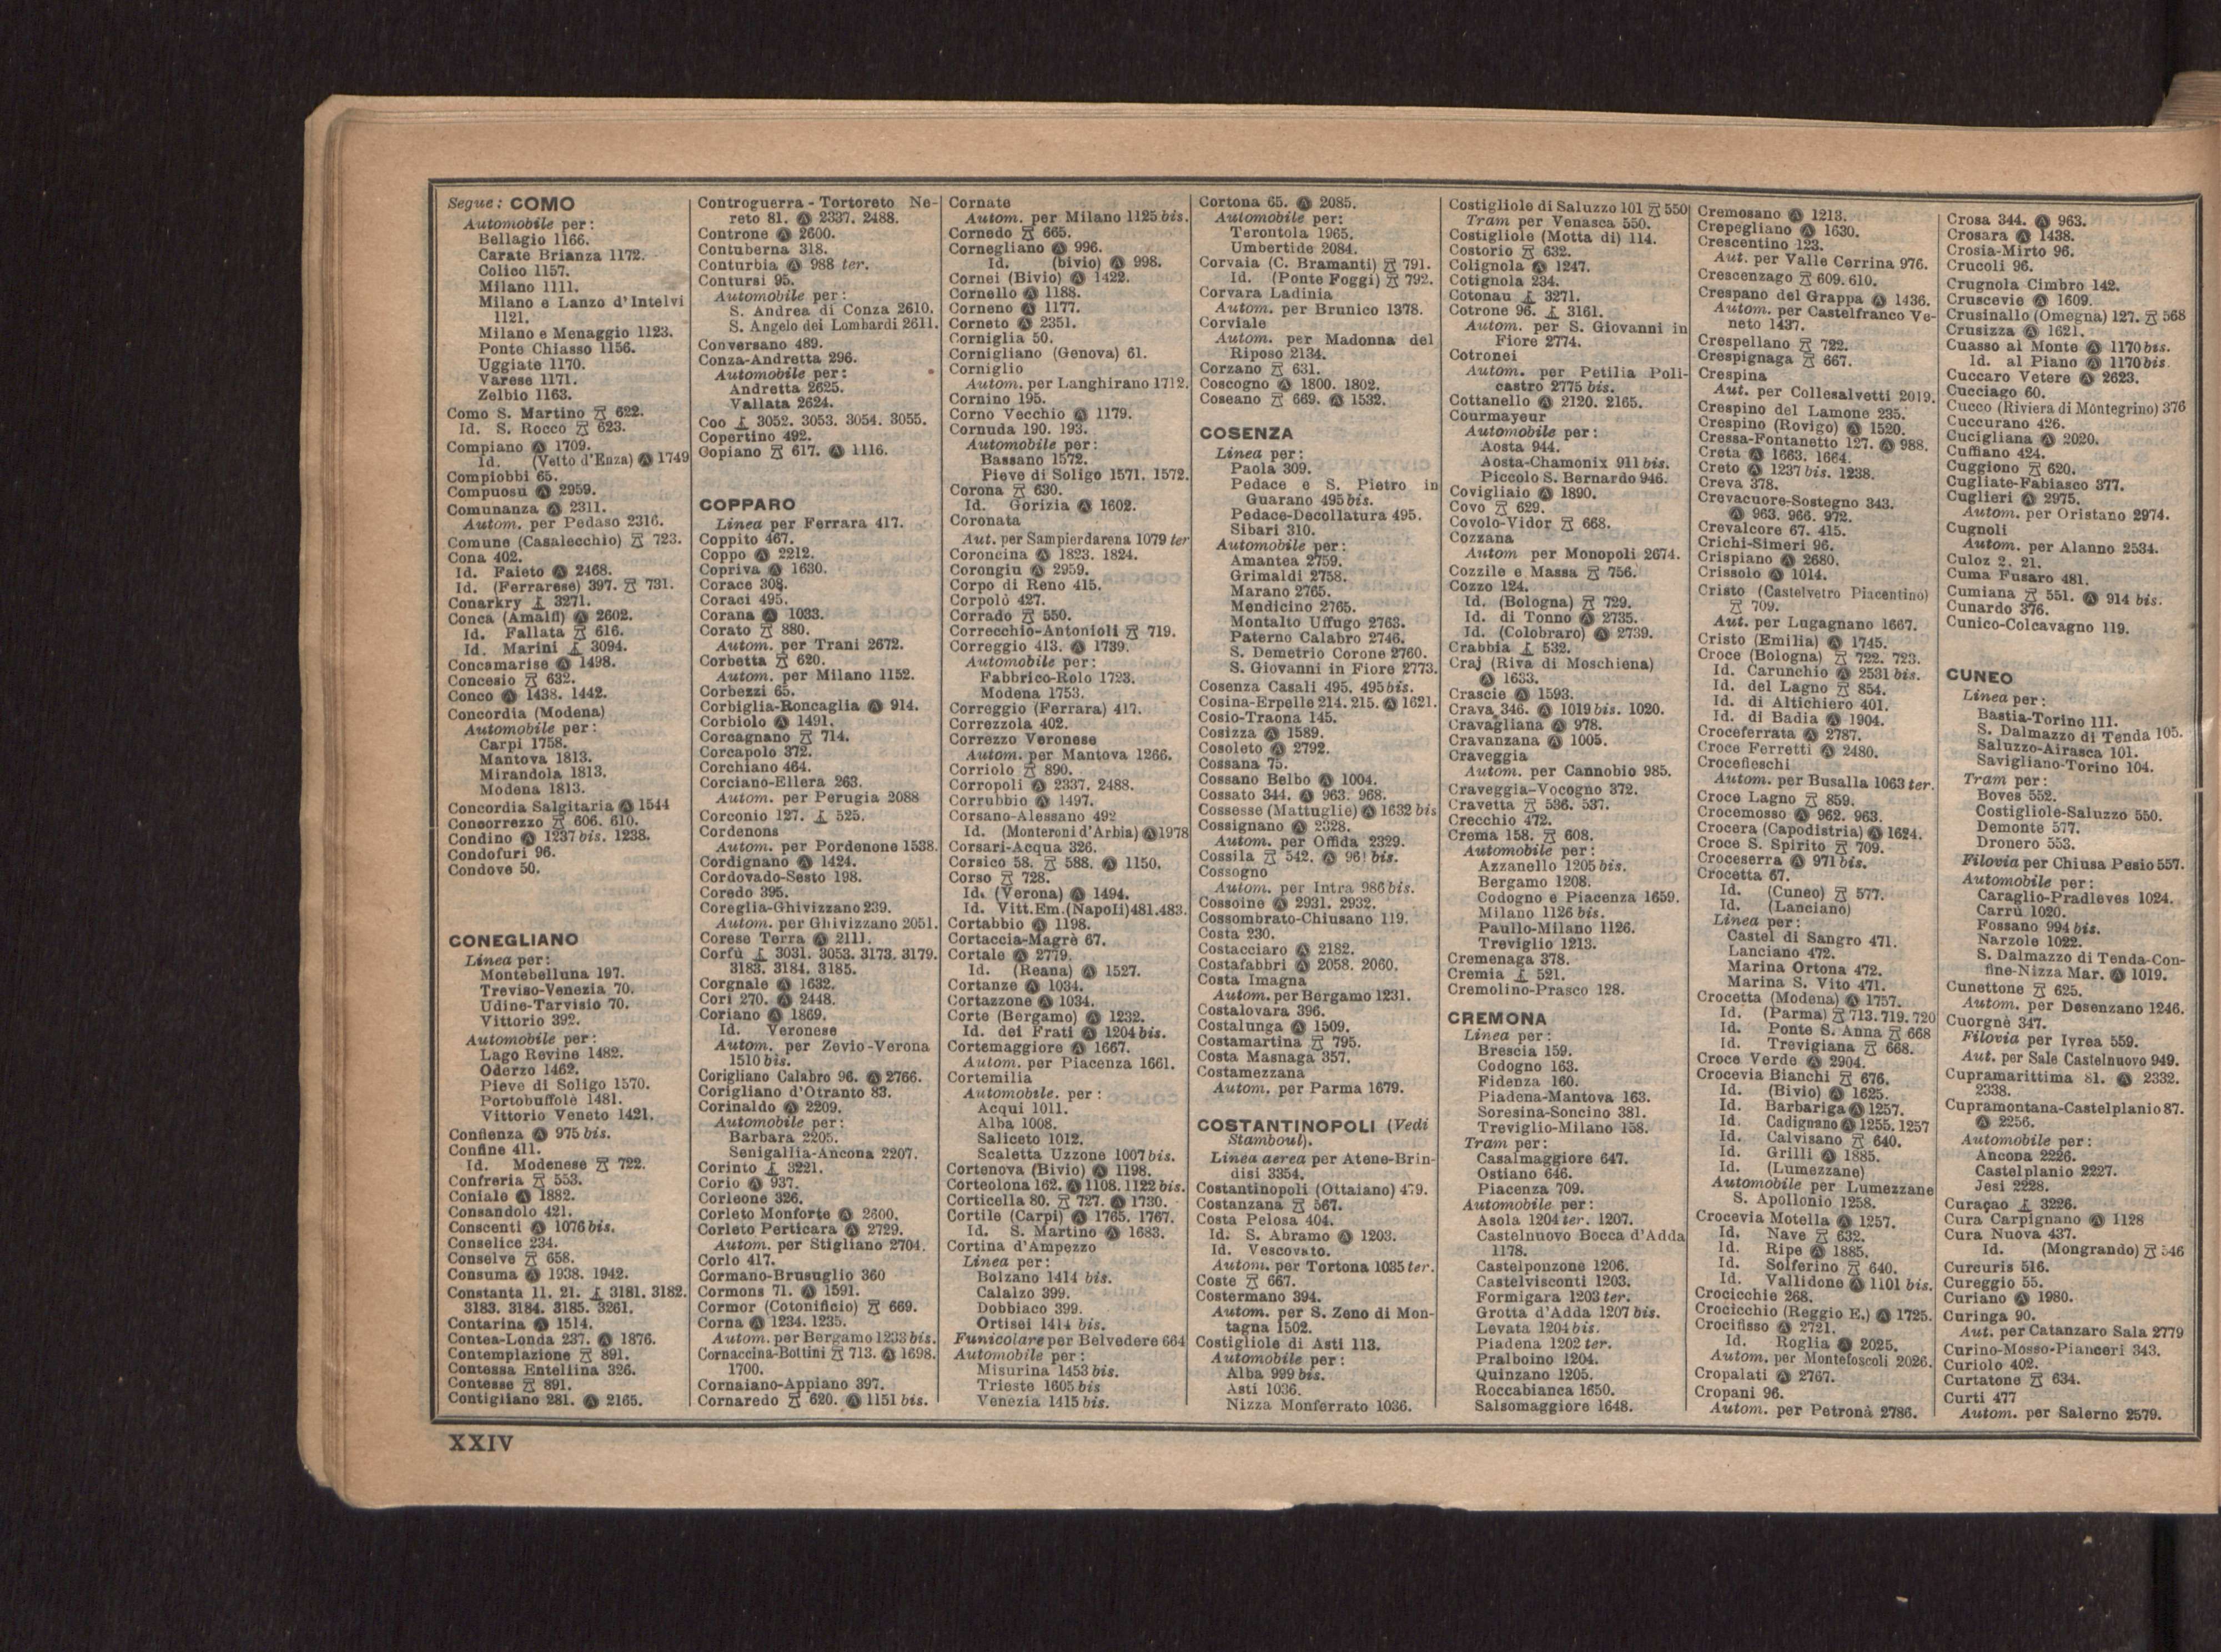 Segue: COMO
Automobile per:
Bellagio 1166.
Carate Brianza 1172.
Colico 1157.
Milano 1111.
Milano e Lanzo d'Intelvi
1121.
Milano e Menaggio 1123.
Ponte Chiasso 1156.
Uggiate 1170.
Varese 1171.
Zelbio 1163.
Como S. Martino 622.
Id. S. Rocco 623.
Compiano Ⓐ 1709.
Id. (Vetto d'Enza) Ⓐ 1749
Compiobbi 65.
Compuosu Ⓐ 2959.
Comunanza Ⓐ 2311.
Autom. per Pedaso 2316.
Comune (Casalecchio) 723.
Cona 402.
Id. Faieto Ⓐ 2468.
Id. (Ferrarese) 397. 731.
Conarkry 3271.
Conca (Amalfi) Ⓐ 2602.
Id. Fallata 616.
Id. Marini 3094.
Concamarise Ⓐ 1498.
Concesio 632.
Conco Ⓐ 1438. 1442.
Concordia (Modena)
Automobile per:
Carpi 1758.
Mantova 1813.
Mirandola 1813.
Modena 1813.
Concordia Salgitaria Ⓐ 1544
Concorrezzo 606. 610.
Condino Ⓐ 1237 bis. 1238.
Condofuri 96.
Condove 50.
CONEGLIANO
Linea per:
Montebelluna 197.
Treviso-Venezia 70.
Udine-Tarvisio 70.
Vittorio 392.
Automobile per:
Lago Revine 1482.
Oderzo 1462.
Pieve di Soligo 1570.
Portobuffolè 1481.
Vittorio Veneto 1421.
Confienza Ⓐ 975 bis.
Confine 411.
Id. Modenese 722.
Confreria 553.
Coniale Ⓐ 1882.
Consandolo 421.
Conscenti Ⓐ 1076 bis.
Conselice 234.
Conselve 658.
Consuma Ⓐ 1938. 1942.
Constanta 11. 21. 3181. 3182.
3183. 3184. 3185. 3261.
Contarina Ⓐ 1514.
Contea-Londa 237. Ⓐ 1876.
Contemplazione 891.
Contessa Entellina 326.
Contesse 891.
Contigliano 281. Ⓐ 2165.
Controguerra - Tortoreto Ne-
reto 81. Ⓐ 2337. 2488.
Controne Ⓐ 2600.
Contuberna 318.
Conturbia Ⓐ 988 ter.
Contursi 95.
Automobile per:
S. Andrea di Conza 2610.
S. Angelo dei Lombardi 2611.
Conversano 489.
Conza-Andretta 296.
Automobile per:
Andretta 2625.
Vallata 2624.
Coo 3052. 3053. 3054. 3055.
Copertino 492.
Copiano 617. Ⓐ 1116.
COPPARO
Linea per Ferrara 417.
Coppito 467.
Coppo Ⓐ 2212.
Copriva Ⓐ 1630.
Corace 308.
Coraci 495.
Corana Ⓐ 1033.
Corato 880.
Autom. per Trani 2672.
Corbetta 620.
Autom. per Milano 1152.
Corbezzi 65.
Corbiglia-Roncaglia Ⓐ 914.
Corbiolo Ⓐ 1491.
Corcagnano 714.
Corcapolo 372.
Corchiano 464.
Corciano-Ellera 263.
Autom. per Perugia 2088
Corconio 127. 525.
Cordenons
Autom. per Pordenone 1538.
Cordignano Ⓐ 1424.
Cordovado-Sesto 198.
Coredo 395.
Coreglia-Ghivizzano 239.
Autom. per Ghivizzano 2051.
Corese Terra Ⓐ 2111.
Corfù 3031. 3053. 3173. 3179.
3183. 3184. 3185.
Corgnale Ⓐ 1632.
Cori 270. Ⓐ 2448.
Coriano Ⓐ 1869.
Id. Veronese
Autom. per Zevio-Verona
1510 bis.
Corigliano Calabro 96. Ⓐ 2766.
Corigliano d'Otranto 83.
Corinaldo Ⓐ 2209.
Automobile per:
Barbara 2205.
Senigallia-Ancona 2207.
Corinto 3221.
Corio Ⓐ 937.
Corleone 326.
Corleto Monforte Ⓐ 2600.
Corleto Perticara Ⓐ 2729.
Autom. per Stigliano 2704.
Corlo 417.
Cormano-Brusuglio 360
Cormons 71. Ⓐ 1591.
Cormor (Cotonificio) 669.
Corna Ⓐ 1234. 1235.
Autom. per Bergamo 1233 bis.
Cornaccina-Bottini 713. Ⓐ 1698.
1700.
Cornaiano-Appiano 397.
Cornaredo 620. Ⓐ 1151 bis.
Cornate
Autom. per Milano 1125 bis.
Cornedo 665.
Cornegliano Ⓐ 996.
Id. (bivio) Ⓐ 998.
Cornei (Bivio) Ⓐ 1422.
Cornello Ⓐ 1188.
Corneno Ⓐ 1177.
Corneto Ⓐ 2351.
Corniglia 50.
Cornigliano (Genova) 61.
Corniglio
Autom. per Langhirano 1712.
Cornino 195.
Corno Vecchio Ⓐ 1179.
Cornuda 190. 193.
Automobile per:
Bassano 1572.
Pieve di Soligo 1571. 1572.
Corona 630.
Id. Gorizia Ⓐ 1602.
Coronata
Aut. per Sampierdarena 1079 ter
Coroncina Ⓐ 1823. 1824.
Corongiu Ⓐ 2959.
Corpo di Reno 415.
Corpolò 427.
Corrado 550.
Correcchio-Antonioli 719.
Correggio 413. Ⓐ 1739.
Automobile per:
Fabbrico-Rolo 1723.
Modena 1753.
Correggio (Ferrara) 417.
Correzzola 402.
Correzzo Veronese
Autom. per Mantova 1266.
Corriolo 890.
Corropoli Ⓐ 2337. 2488.
Corrubbio Ⓐ 1497.
Corsano-Alessano 492
Id. (Monteroni d'Arbia) Ⓐ 1978
Corsari-Acqua 326.
Corsico 58. 588. Ⓐ 1150.
Corso 728.
Id. (Verona) Ⓐ 1494.
Id. Vitt.Em.(Napoli) 481.483.
Cortabbio Ⓐ 1198.
Cortaccia-Magrè 67.
Cortale Ⓐ 2779.
Id. (Reana) Ⓐ 1527.
Cortanze Ⓐ 1034.
Cortazzone Ⓐ 1034.
Corte (Bergamo) Ⓐ 1232.
Id. dei Frati Ⓐ 1204 bis.
Cortemaggiore Ⓐ 1667.
Autom. per Piacenza 1661.
Cortemilia
Automobile. per:
Acqui 1011.
Alba 1008.
Saliceto 1012.
Scaletta Uzzone 1007 bis.
Cortenova (Bivio) Ⓐ 1198.
Corteolona 162. Ⓐ 1108. 1122 bis.
Corticella 80. 727. Ⓐ 1730.
Cortile (Carpi) Ⓐ 1765. 1767.
Id. S. Martino Ⓐ 1683.
Cortina d'Ampezzo
Linea per:
Bolzano 1414 bis.
Calalzo 399.
Dobbiaco 399.
Ortisei 1414 bis.
Funicolare per Belvedere 664
Automobile per:
Misurina 1453 bis.
Trieste 1605 bis
Venezia 1415 bis.
Cortona 65. Ⓐ 2085.
Automobile per:
Terontola 1965.
Umbertide 2084.
Corvaia (C. Bramanti) 791.
Id. (Ponte Foggi) 792.
Corvara Ladinia
Autom. per Brunico 1378.
Corviale
Autom. per Madonna del
Riposo 2134.
Corzano 631.
Coscogno Ⓐ 1800. 1802.
Coseano 669. Ⓐ 1532.
COSENZA
Linea per:
Paola 309.
Pedace e S. Pietro in
Guarano 495 bis.
Pedace-Decollatura 495.
Sibari 310.
Automobile per:
Amantea 2759.
Grimaldi 2758.
Marano 2765.
Mendicino 2765.
Montalto Uffugo 2763.
Paterno Calabro 2746.
S. Demetrio Corone 2760.
S. Giovanni in Fiore 2773.
Cosenza Casali 495. 495 bis.
Cosina-Erpelle 214. 215. Ⓐ 1621.
Cosio-Traona 145.
Cosizza Ⓐ 1589.
Cosoleto Ⓐ 2792.
Cossana 75.
Cossano Belbo Ⓐ 1004.
Cossato 344. Ⓐ 963. 968.
Cossesse (Mattuglie) Ⓐ 1632 bis
Cossignano Ⓐ 2328.
Autom. per Offida 2329.
Cossila 542. Ⓐ 961 bis.
Cossogno
Autom. per Intra 986 bis.
Cossoine Ⓐ 2931. 2932.
Cossombrato-Chiusano 119.
Costa 230.
Costacciaro Ⓐ 2182.
Costafabbri Ⓐ 2058. 2060.
Costa Imagna
Autom. per Bergamo 1231.
Costalovara 396.
Costalunga Ⓐ 1509.
Costamartina 795.
Costa Masnaga 357.
Costamezzana
Autom. per Parma 1679.
COSTANTINOPOLI (Vedi
Stamboul).
Linea aerea per Atene-Brin-
disi 3354.
Costantinopoli (Ottaiano) 479.
Costanzana 567.
Costa Pelosa 404.
Id. S. Abramo Ⓐ 1203.
Id. Vescovato.
Autom. per Tortona 1035 ter.
Coste 667.
Costermano 394.
Autom. per S. Zeno di Mon-
tagna 1502.
Costigliole di Asti 113.
Automobile per:
Alba 999 bis.
Asti 1036.
Nizza Monferrato 1036.
Costigliole di Saluzzo 101 550
Tram per Venasca 550.
Costigliole (Motta di) 114.
Costorio 632.
Colignola Ⓐ 1247.
Cotignola 234.
Cotonau 3271.
Cotrone 96. 3161.
Autom. per S. Giovanni in
Fiore 2774.
Cotronei
Autom. per Petilia Poli-
castro 2775 bis.
Cottanello Ⓐ 2120. 2165.
Courmayeur
Automobile per:
Aosta 944.
Aosta-Chamonix 911 bis.
Piccolo S. Bernardo 946.
Covigliaio Ⓐ 1890.
Covo 629.
Covolo-Vidor 668.
Cozzana
Autom per Monopoli 2674.
Cozzile e Massa 756.
Cozzo 124.
Id. (Bologna) 729.
Id. di Tonno Ⓐ 2735.
Id. (Colobraro) Ⓐ 2739.
Crabbia 532.
Craj (Riva di Moschiena)
Ⓐ 1633.
Crascie Ⓐ 1593.
Crava 346. Ⓐ 1019 bis. 1020.
Cravagliana Ⓐ 978.
Cravanzana Ⓐ 1005.
Craveggia
Autom. per Cannobio 985.
Craveggia-Vocogno 372.
Cravetta 536. 537.
Crecchio 472.
Crema 158. 608.
Automobile per:
Azzanello 1205 bis.
Bergamo 1208.
Codogno e Piacenza 1659.
Milano 1126 bis.
Paullo-Milano 1126.
Treviglio 1213.
Cremenaga 378.
Cremia 521.
Cremolino-Prasco 128.
CREMONA
Linea per:
Brescia 159.
Codogno 163.
Fidenza 160.
Piadena-Mantova 163.
Soresina-Soncino 381.
Treviglio-Milano 158.
Tram per:
Casalmaggiore 647.
Ostiano 646.
Piacenza 709.
Automobile per:
Asola 1204 ter. 1207.
Castelnuovo Bocca d'Adda
1178.
Castelponzone 1206.
Castelvisconti 1203.
Formigara 1203 ter.
Grotta d'Adda 1207 bis.
Levata 1204 bis.
Piadena 1202 ter.
Pralboino 1204.
Quinzano 1205.
Roccabianca 1650.
Salsomaggiore 1648.
Cremosano Ⓐ 1213.
Crepegliano Ⓐ 1630.
Crescentino 123.
Aut. per Valle Cerrina 976.
Crescenzago 609. 610.
Crespano del Grappa Ⓐ 1436.
Autom. per Castelfranco Ve-
neto 1437.
Crespellano 722.
Crespignaga 667.
Crespina
Aut. per Collesalvetti 2019.
Crespino del Lamone 235.
Crespino (Rovigo) Ⓐ 1520.
Cressa-Fontanetto 127. Ⓐ 988.
Creta Ⓐ 1663. 1664.
Creto Ⓐ 1237 bis. 1238.
Creva 378.
Crevacuore-Sostegno 343.
Ⓐ 963. 966. 972.
Crevalcore 67. 415.
Crichi-Simeri 96.
Crispiano Ⓐ 2680.
Crissolo Ⓐ 1014.
Cristo (Castelvetro Piacentino)
709.
Aut. per Lugagnano 1667.
Cristo (Emilia) Ⓐ 1745.
Croce (Bologna) 722. 723.
Id. Carunchio Ⓐ 2531 bis.
Id. del Lagno 854.
Id. di Altichiero 401.
Id. di Badia Ⓐ 1904.
Croceferrata Ⓐ 2787.
Croce Ferretti Ⓐ 2480.
Crocefieschi
Autom. per Busalla 1063 ter.
Croce Lagno 859.
Crocemosso Ⓐ 962. 963.
Crocera (Capodistria) Ⓐ 1624.
Croce S. Spirito 709.
Croceserra Ⓐ 971 bis.
Crocetta 67.
Id. (Cuneo) 577.
Id. (Lanciano)
Linea per:
Castel di Sangro 471.
Lanciano 472.
Marina Ortona 472.
Marina S. Vito 471.
Crocetta (Modena) Ⓐ 1757.
Id. (Parma) 713. 719. 720
Id. Ponte S. Anna 668
Id. Trevigiana 668.
Croce Verde Ⓐ 2904.
Crocevia Bianchi 676.
Id. (Bivio) Ⓐ 1625.
Id. Barbariga Ⓐ 1257.
Id. Cadignano Ⓐ 1255. 1257
Id. Calvisano 640.
Id. Grilli Ⓐ 1885.
Id. (Lumezzane)
Automobile per Lumezzane
S. Apollonio 1258.
Crocevia Motella Ⓐ 1257.
Id. Nave 632.
Id. Ripe Ⓐ 1885.
Id. Solferino 640.
Id. Vallidone Ⓐ 1101 bis.
Crocicchie 268.
Crocicchio (Reggio E.) Ⓐ 1725.
Crocifisso Ⓐ 2721.
Id. Roglia Ⓐ 2025.
Autom. per Montefoscoli 2026.
Cropalati Ⓐ 2767.
Cropani 96.
Autom. per Petronà 2786.
Crosa 344. Ⓐ 963.
Crosara Ⓐ 1438.
Crosia-Mirto 96.
Crucoli 96.
Crugnola Cimbro 142.
Cruscevie Ⓐ 1609.
Crusinallo (Omegna) 127. 568
Crusizza Ⓐ 1621.
Cuasso al Monte Ⓐ 1170 bis.
Id. al Piano Ⓐ 1170 bis
Cuccaro Vetere Ⓐ 2623.
Cucciago 60.
Cucco (Riviera di Montegrino) 376
Cuccurano 426.
Cucigliana Ⓐ 2020.
Cuffiano 424.
Cuggiono 620.
Cugliate-Fabiasco 377.
Cuglieri Ⓐ 2975.
Autom. per Oristano 2974.
Cugnoli
Autom. per Alanno 2534.
Culoz 2. 21.
Cuma Fusaro 481.
Cumiana 551. Ⓐ 914 bis.
Cunardo 376.
Cunico-Colcavagno 119.
CUNEO
Linea per:
Bastia-Torino 111.
S. Dalmazzo di Tenda 105.
Saluzzo-Airasca 101.
Savigliano-Torino 104.
Tram per:
Boves 552.
Costigliole-Saluzzo 550.
Demonte 577.
Dronero 553.
Filovia per Chiusa Pesio 557.
Automobile per:
Caraglio-Pradleves 1024.
Carrù 1020.
Fossano 994 bis.
Narzole 1022.
S. Dalmazzo di Tenda-Con-
fine-Nizza Mar. Ⓐ 1019.
Cunettone 625.
Autom. per Desenzano 1246.
Cuorgnè 347.
Filovia per Ivrea 559.
Aut. per Sale Castelnuovo 949.
Cupramarittima 81. Ⓐ 2332.
2338.
Cupramontana-Castelplanio 87.
Ⓐ 2256.
Automobile per:
Ancona 2226.
Castelplanio 2227.
Jesi 2228.
Curaçao 3226.
Cura Carpignano Ⓐ 1128
Cura Nuova 437.
Id. (Mongrando) 546
Curcuris 516.
Cureggio 55.
Curiano Ⓐ 1980.
Curinga 90.
Aut. per Catanzaro Sala 2779
Curino-Mosso-Pianceri 343.
Curiolo 402.
Curtatone 634.
Curti 477
Autom. per Salerno 2579.
XXIV